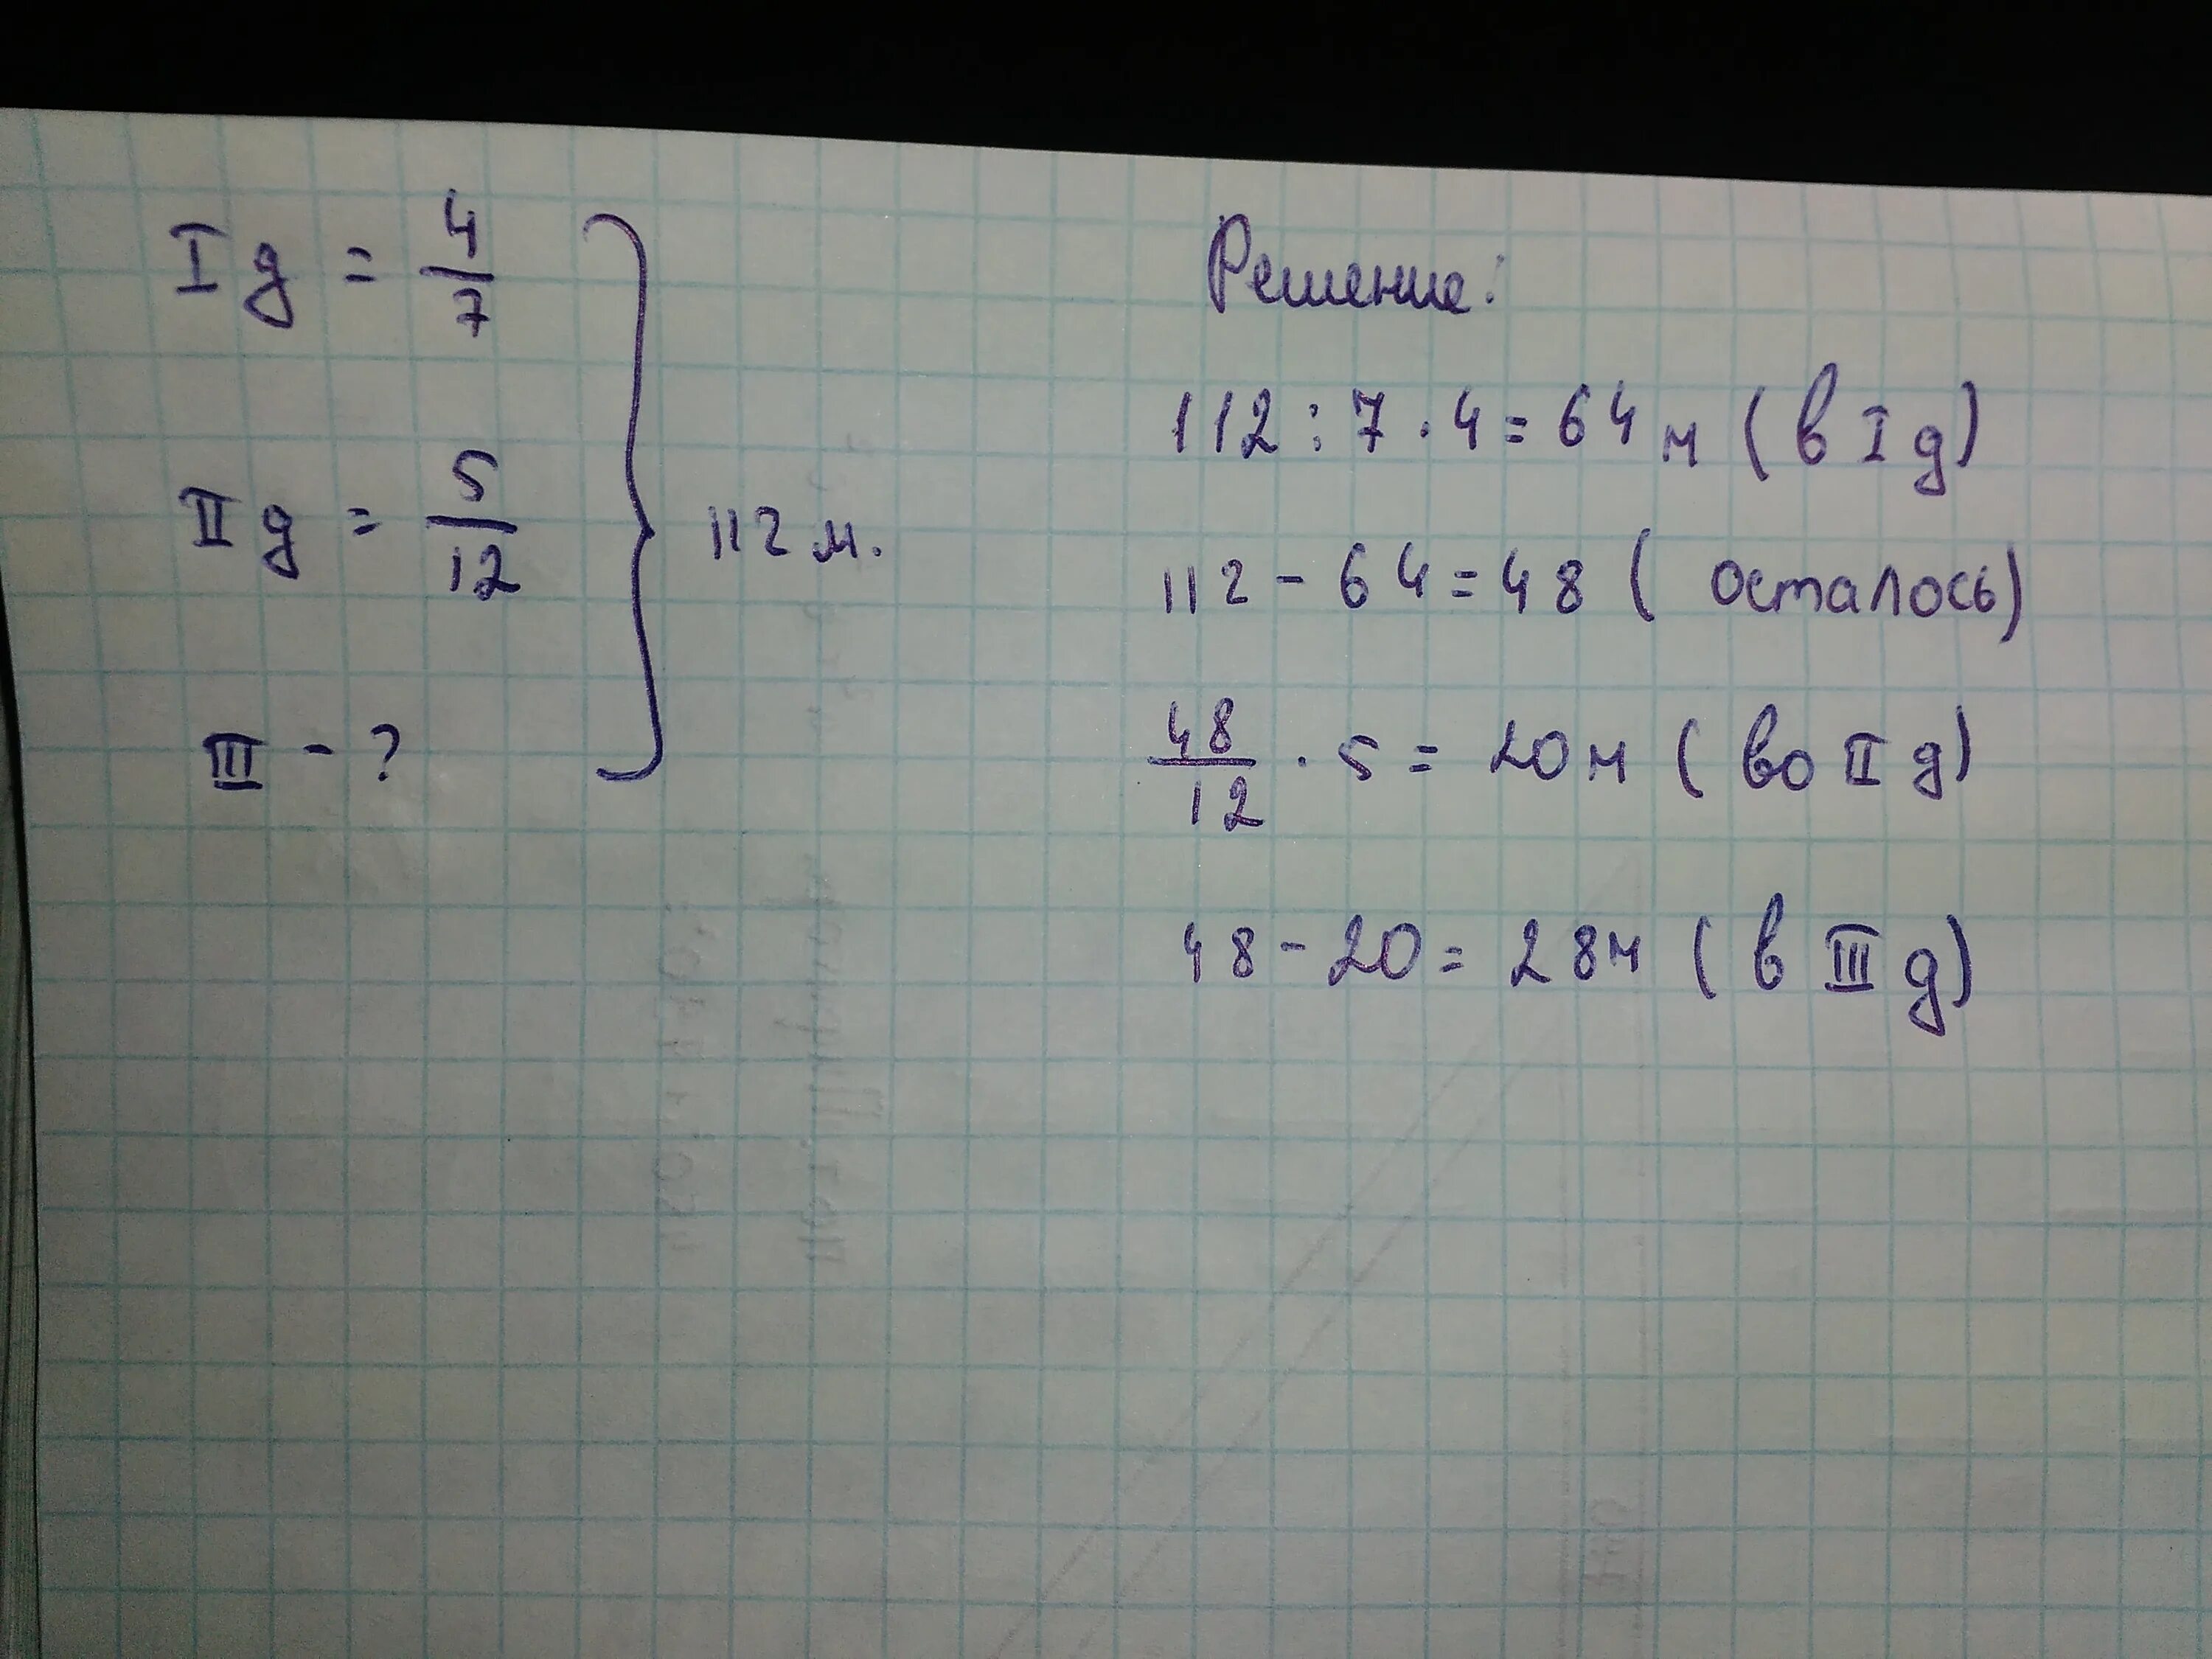 I д = 4/7
II д = 5/12
III - ?
112 м.
Решение:
112 : 7 · 4 = 64 м (в I д)
112 - 64 = 48 ( осталось)
48/12 · 5 = 20 м (во II д)
48 - 20 = 28 м (в III д)